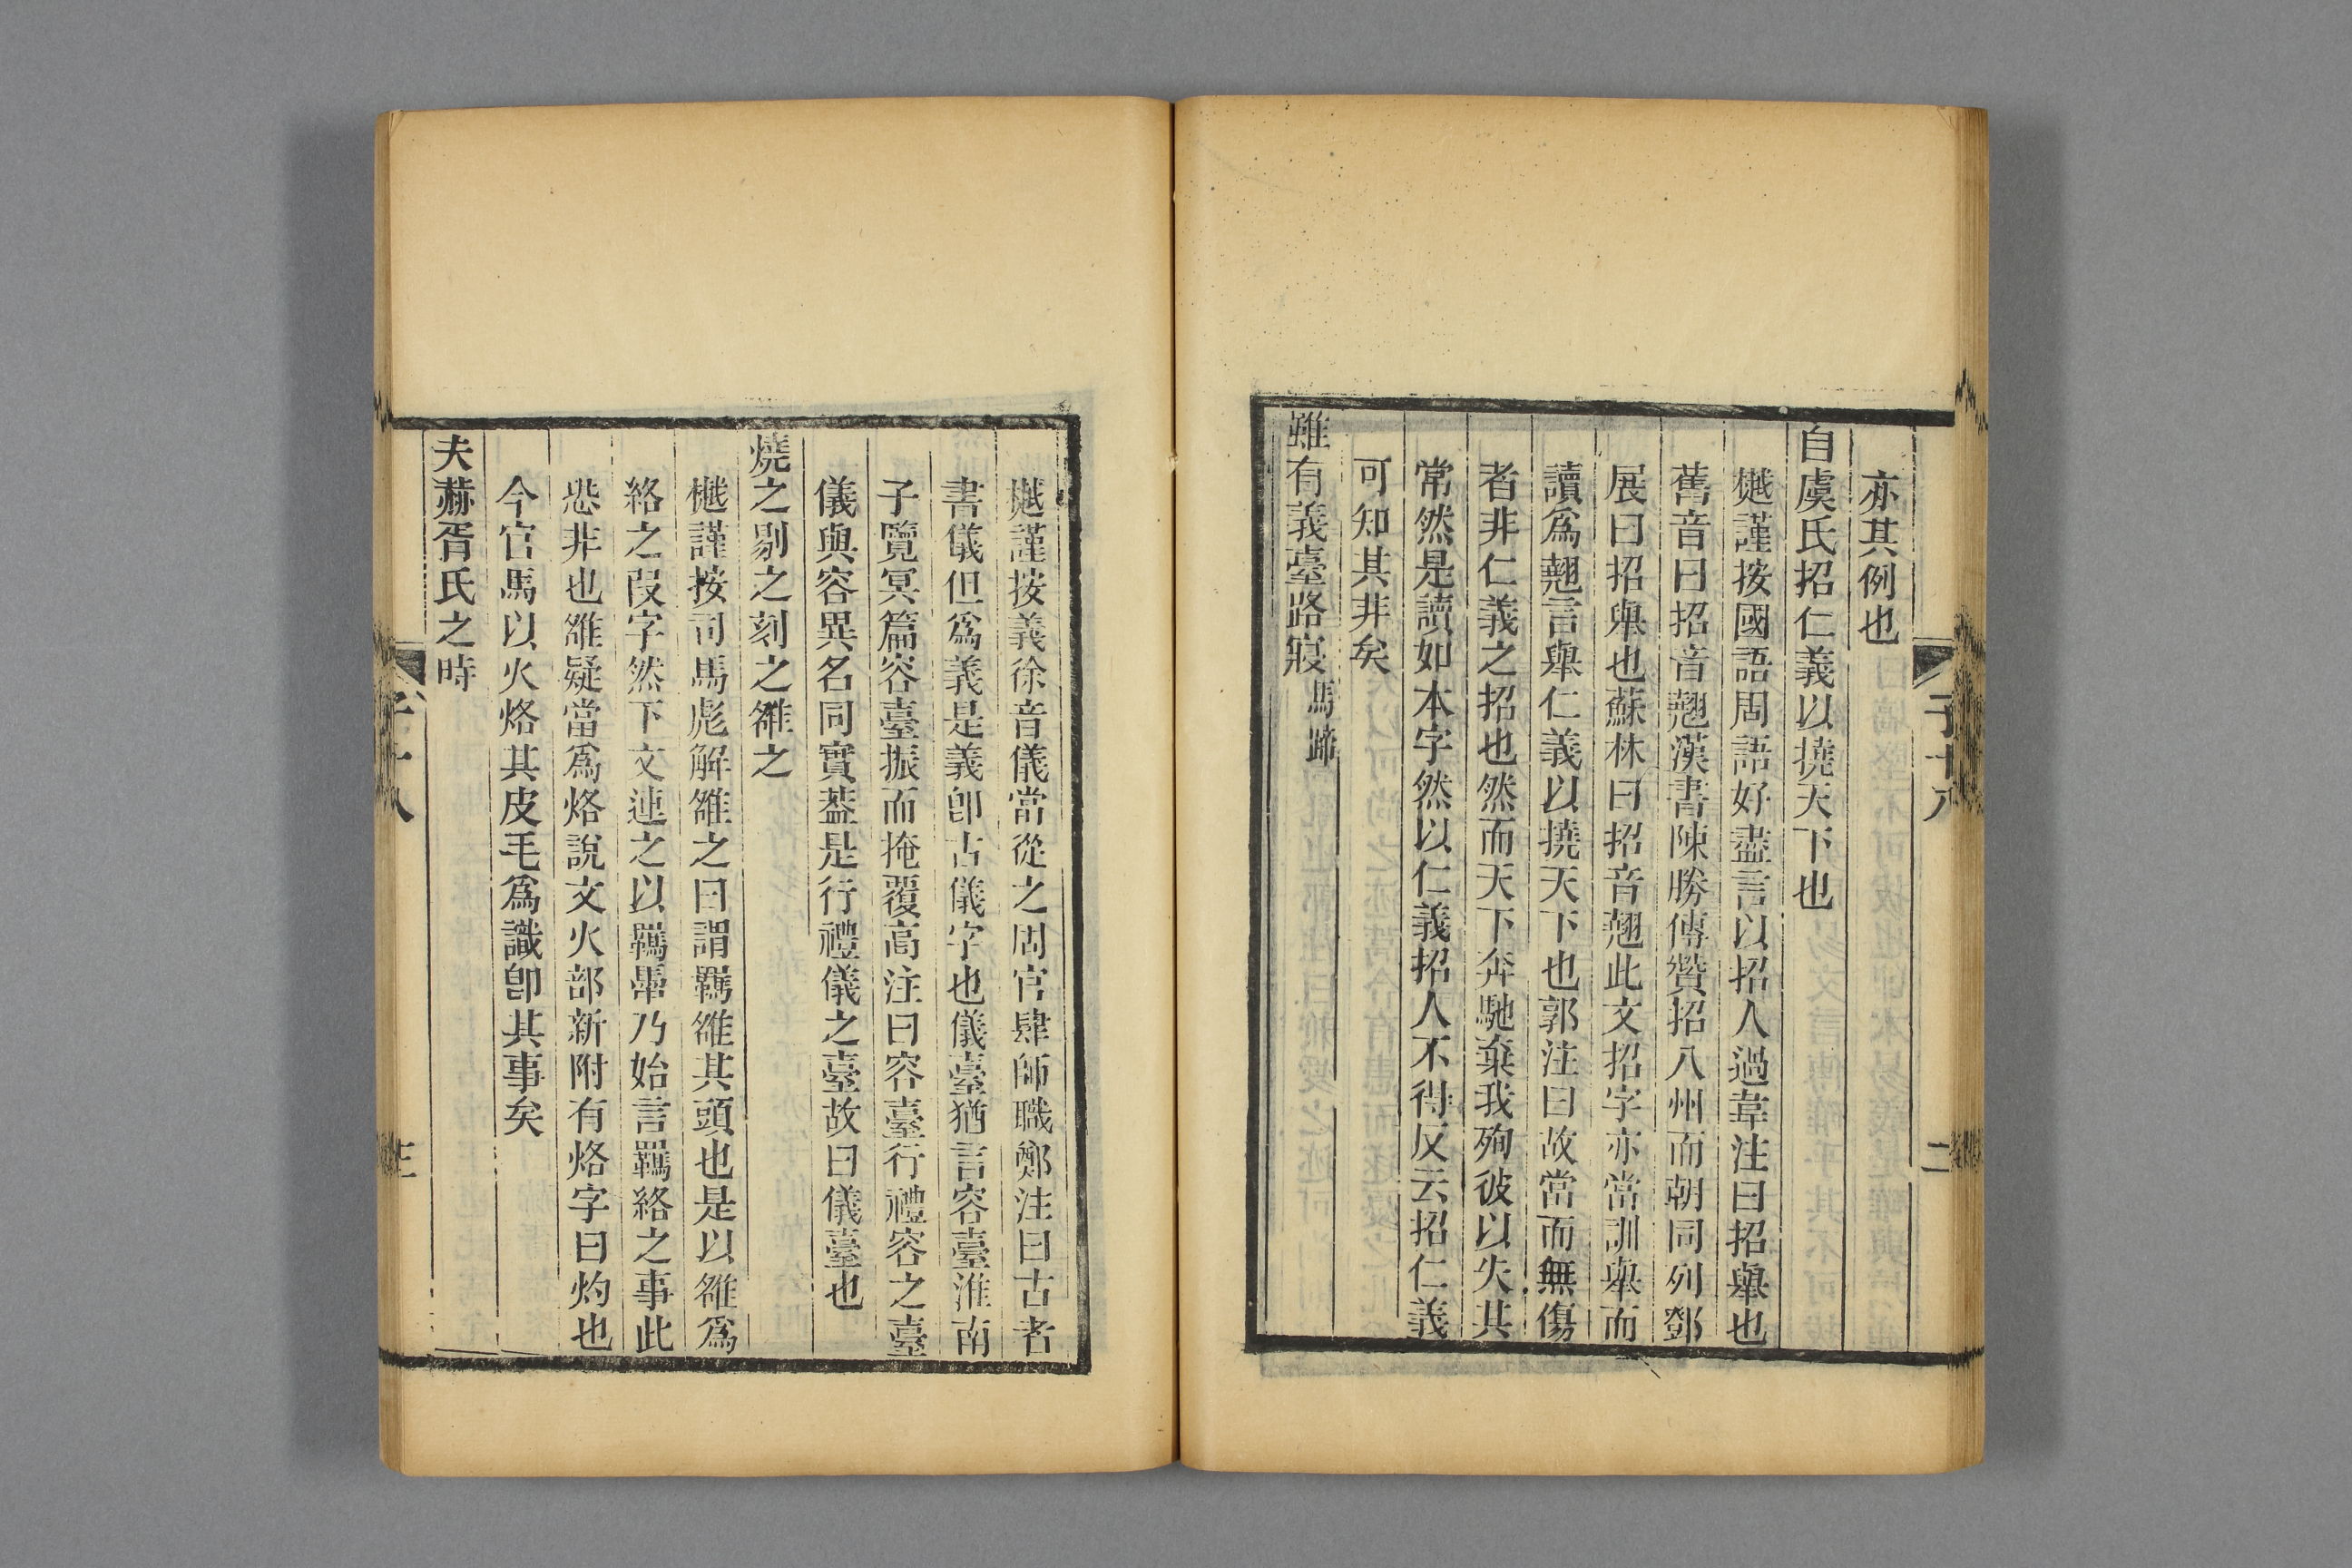 亦其例也
自虞氏招仁義以撓天下也
樾謹按國語周語好盡言以招人過韋注曰招舉也
舊音曰招音翹漢書陳勝傳贊招八州而朝同列鄧
展曰招舉也蘇林曰招音翹此文招字亦當訓舉而
讀爲翹言舉仁義以撓天下也郭注曰故當而無傷
者非仁義之招也然而天下奔馳棄我殉彼以失其
常然是讀如本字然以仁義招人不得反云招仁義
可知其非矣
雖有義臺路寢馬蹄
子十八
二
樾謹按義徐音儀當從之周官肆師職鄭注曰古者
書儀但爲義是義卽古儀字也儀臺猶言容臺淮南
子覽冥篇容臺振而掩覆高注曰容臺行禮容之臺
儀與容異名同實葢是行禮儀之臺故曰儀臺也
燒之剔之刻之雒之
樾謹按司馬彪解雒之曰謂羈雒其頭也是以雒爲
絡之叚字然下文連之以羈馽乃始言羈絡之事此
恐非也雒疑當爲烙說文火部新附有烙字曰灼也
今官馬以火烙其皮毛爲識卽其事矣
夫赫胥氏之時
子十八
三